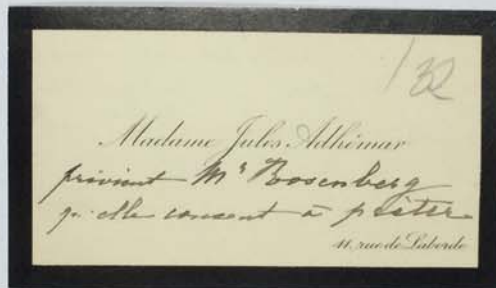 /32
Madame Jules Adhémar
prévient Mr Rosenberg
qu'elle consent à prêter
11, rue de Laborde